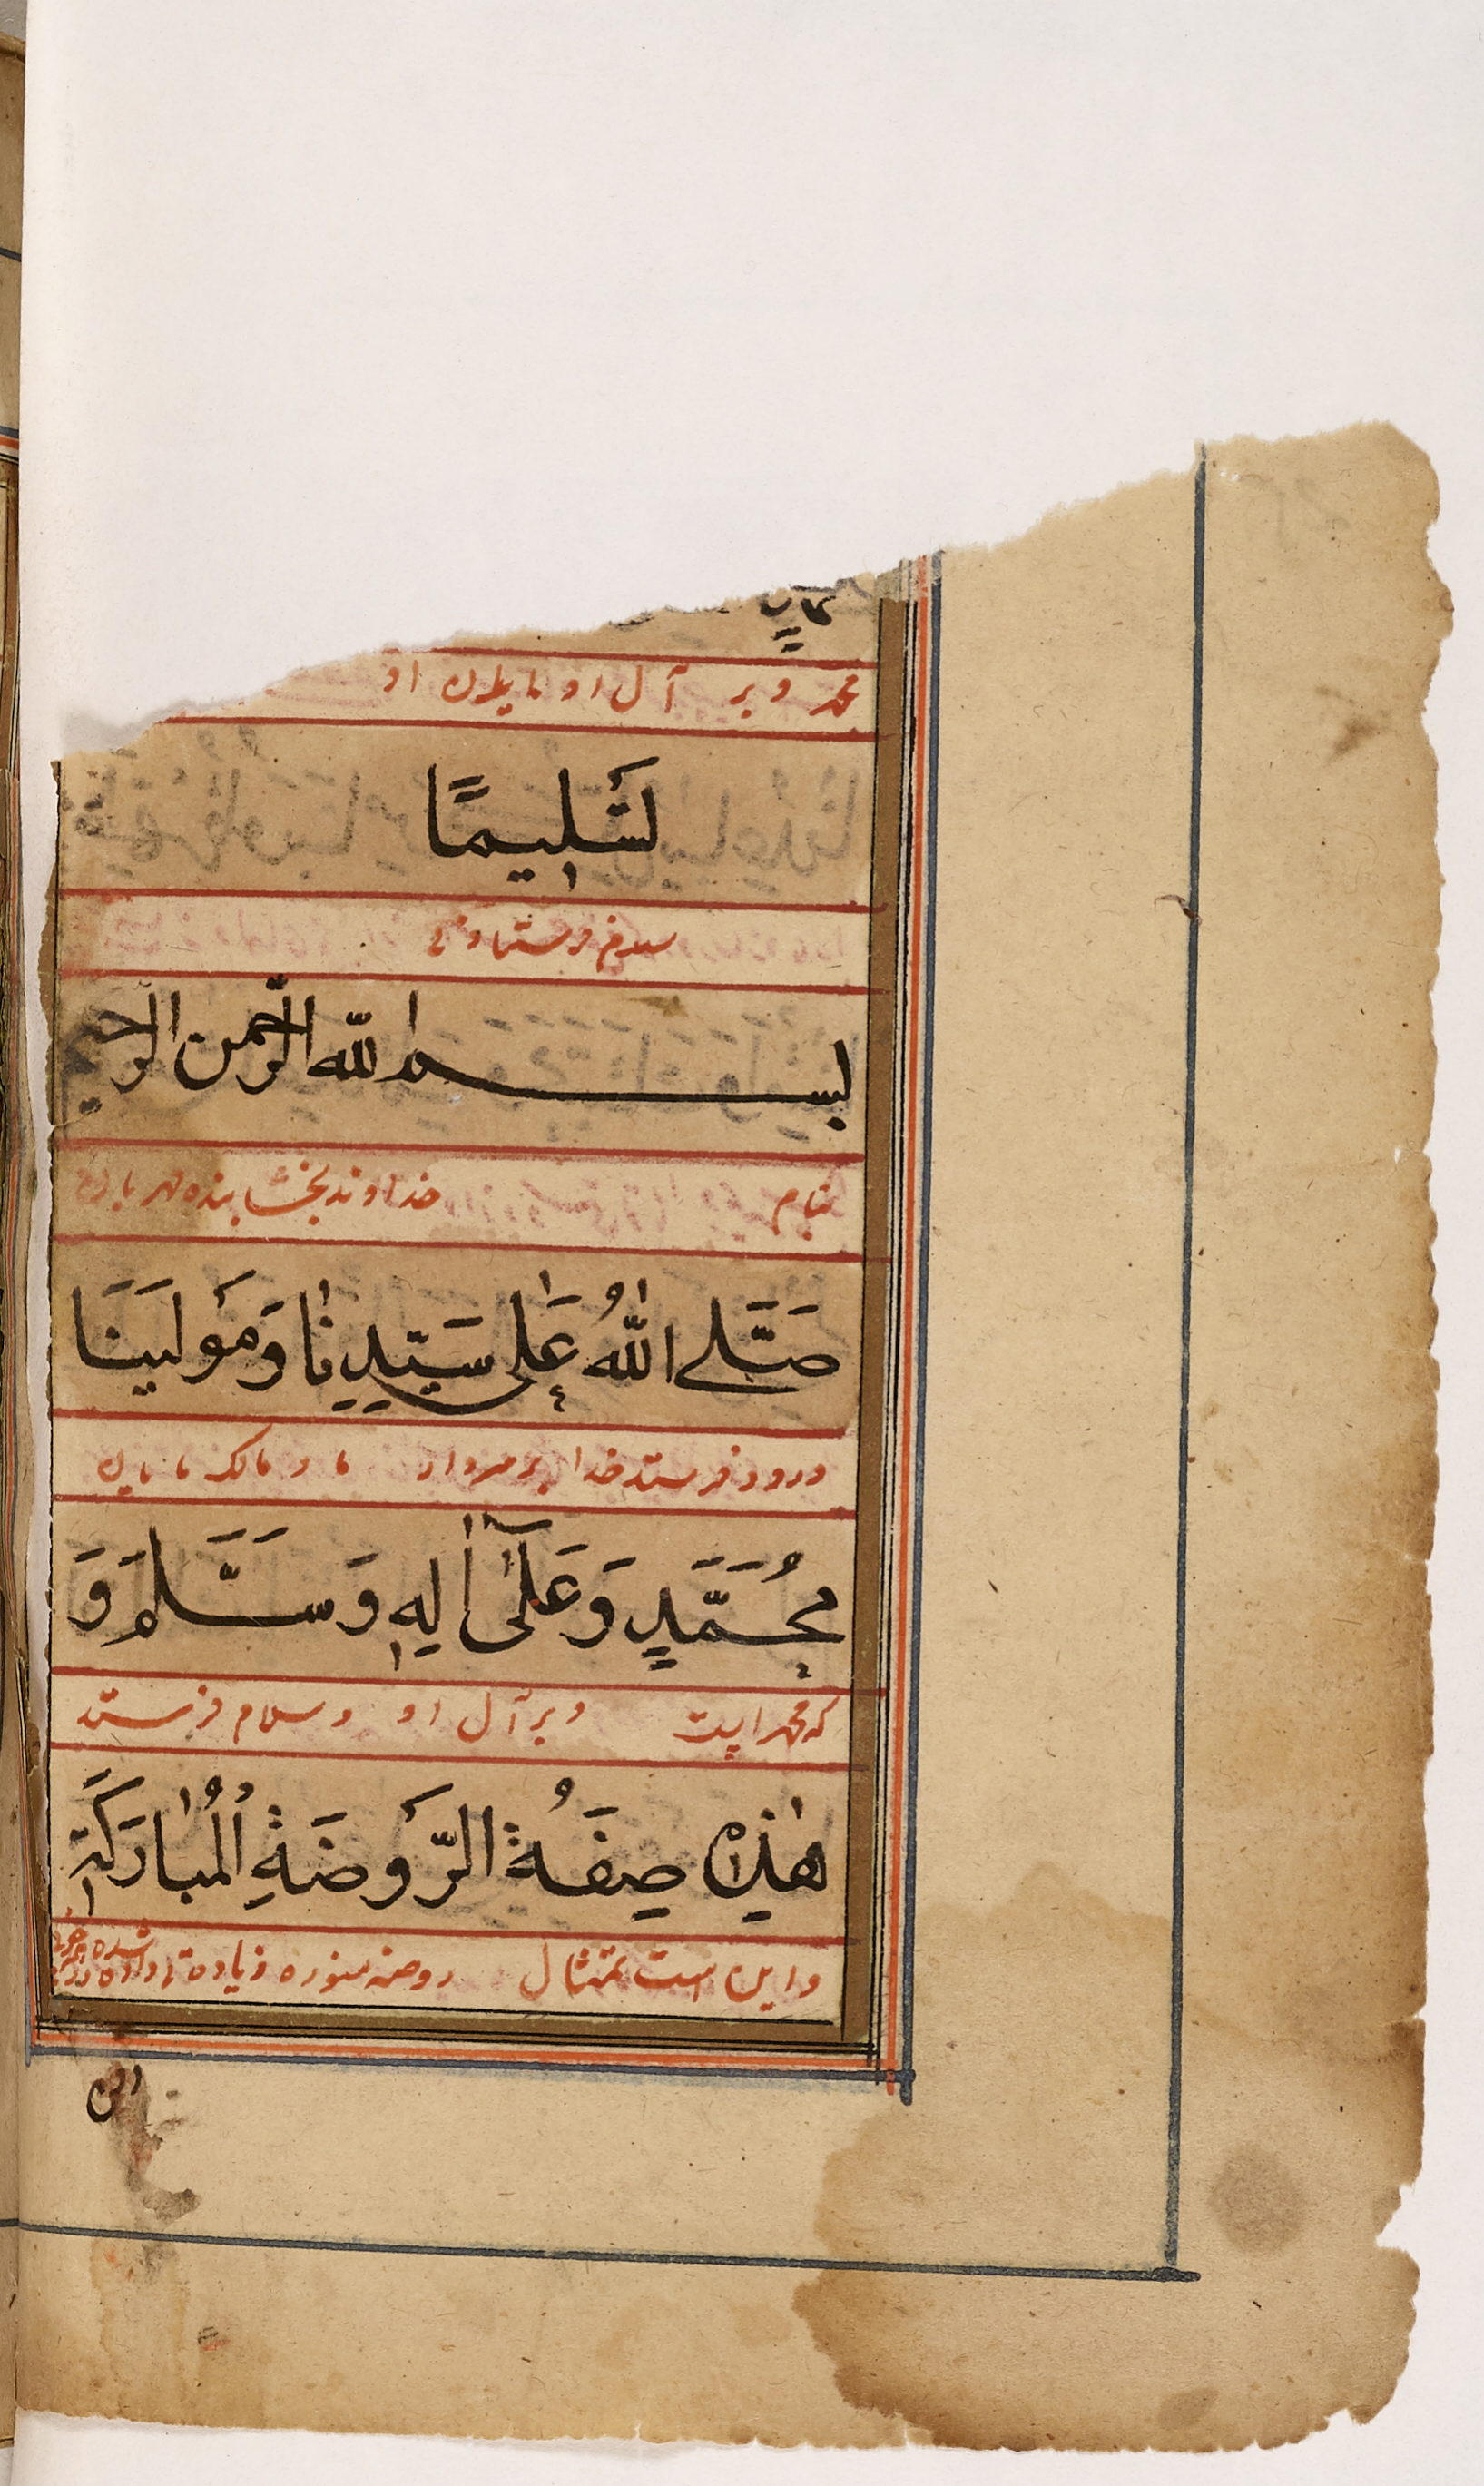 محمد و بر آل او و یاران او
تَسْلِيمًا
سلام فرستادنی
بسم الله الرحمن الرحيم
بنام خداوند بخشاینده مهربان
صَلَّى اللهُ عَلٰى سَيِّدِنَا وَمَوْلَيٰنَا
درود فرستد خدا بر سردار ما و مالک ما یان
مُحَمَّدٍ وَعَلٰى اٰلِهٖ وَسَلَّمَ وَ
که محمد است و بر آل او و سلام فرستد
هٰذِهٖ صِفَةُ الرَّوْضَةِ الْمُبَارَكَةِ
و این است تمثال روضه منوره زیاده
التی